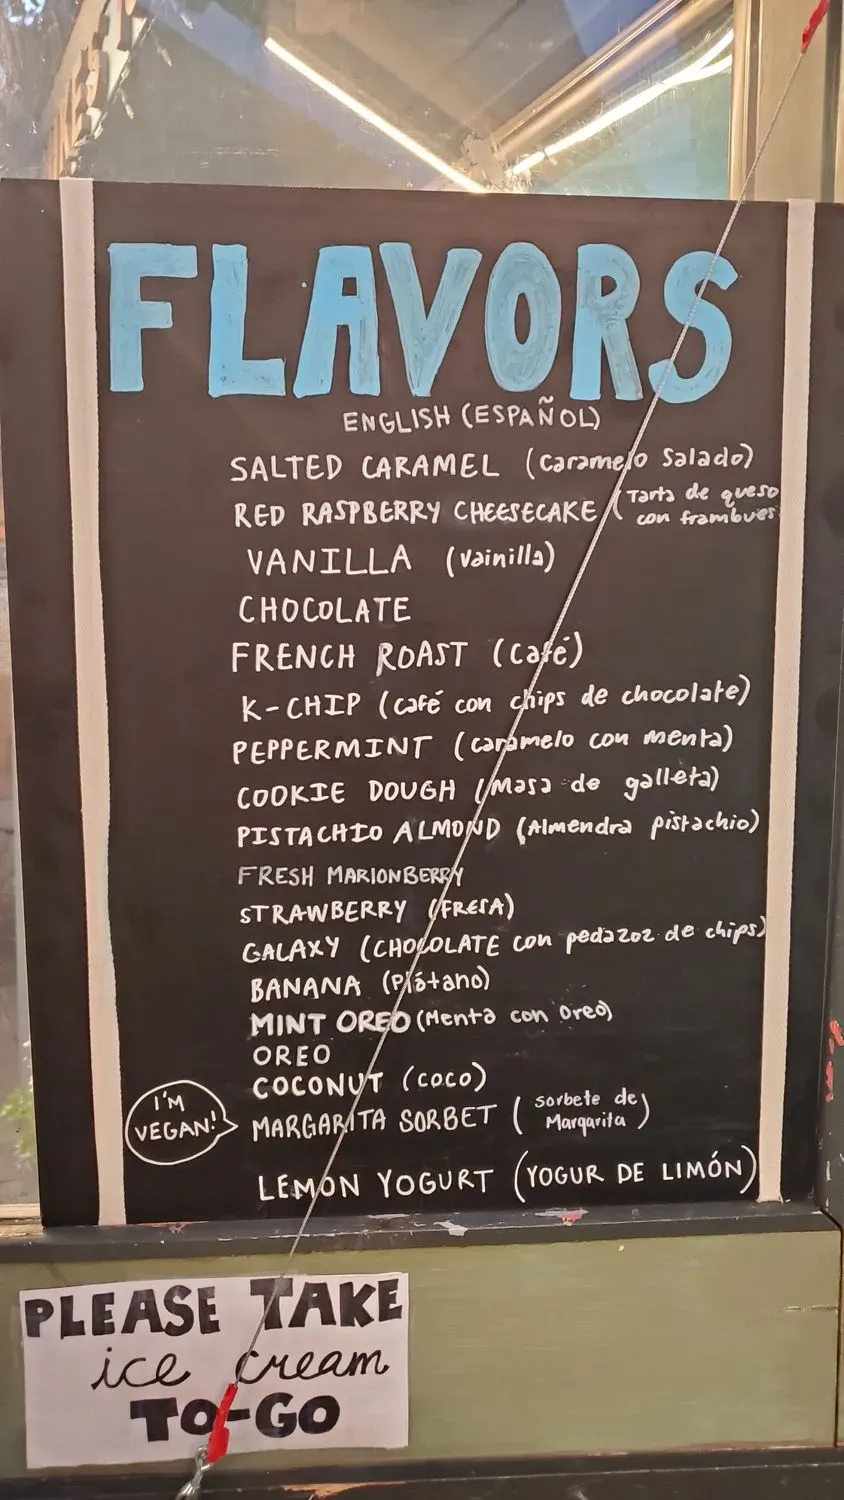 FLAVORS
ENGLISH (ESPAÑOL)
SALTED CARAMEL (caramelo salado)
RED RASPBERRY CHEESECAKE (Tarta de queso
con frambues
VANILLA (vainilla)
CHOCOLATE
FRENCH ROAST (café)
K-CHIP (café con chips de chocolate)
PEPPERMINT (caramelo con menta)
COOKIE DOUGH (Masa de galleta)
PISTACHIO ALMOND (Almendra pistachio)
FRESH MARIONBERRY
STRAWBERRY (FRESA)
GALAXY (CHOCOLATE con pedazoz de chips)
BANANA (Plátano)
MINT OREO (Menta con Oreo)
OREO
COCONUT (coco)
I'M
VEGAN!
MARGARITA SORBET (sorbete de
Margarita)
LEMON YOGURT (YOGUR DE LIMÓN)
PLEASE TAKE
ice cream
TO-GO